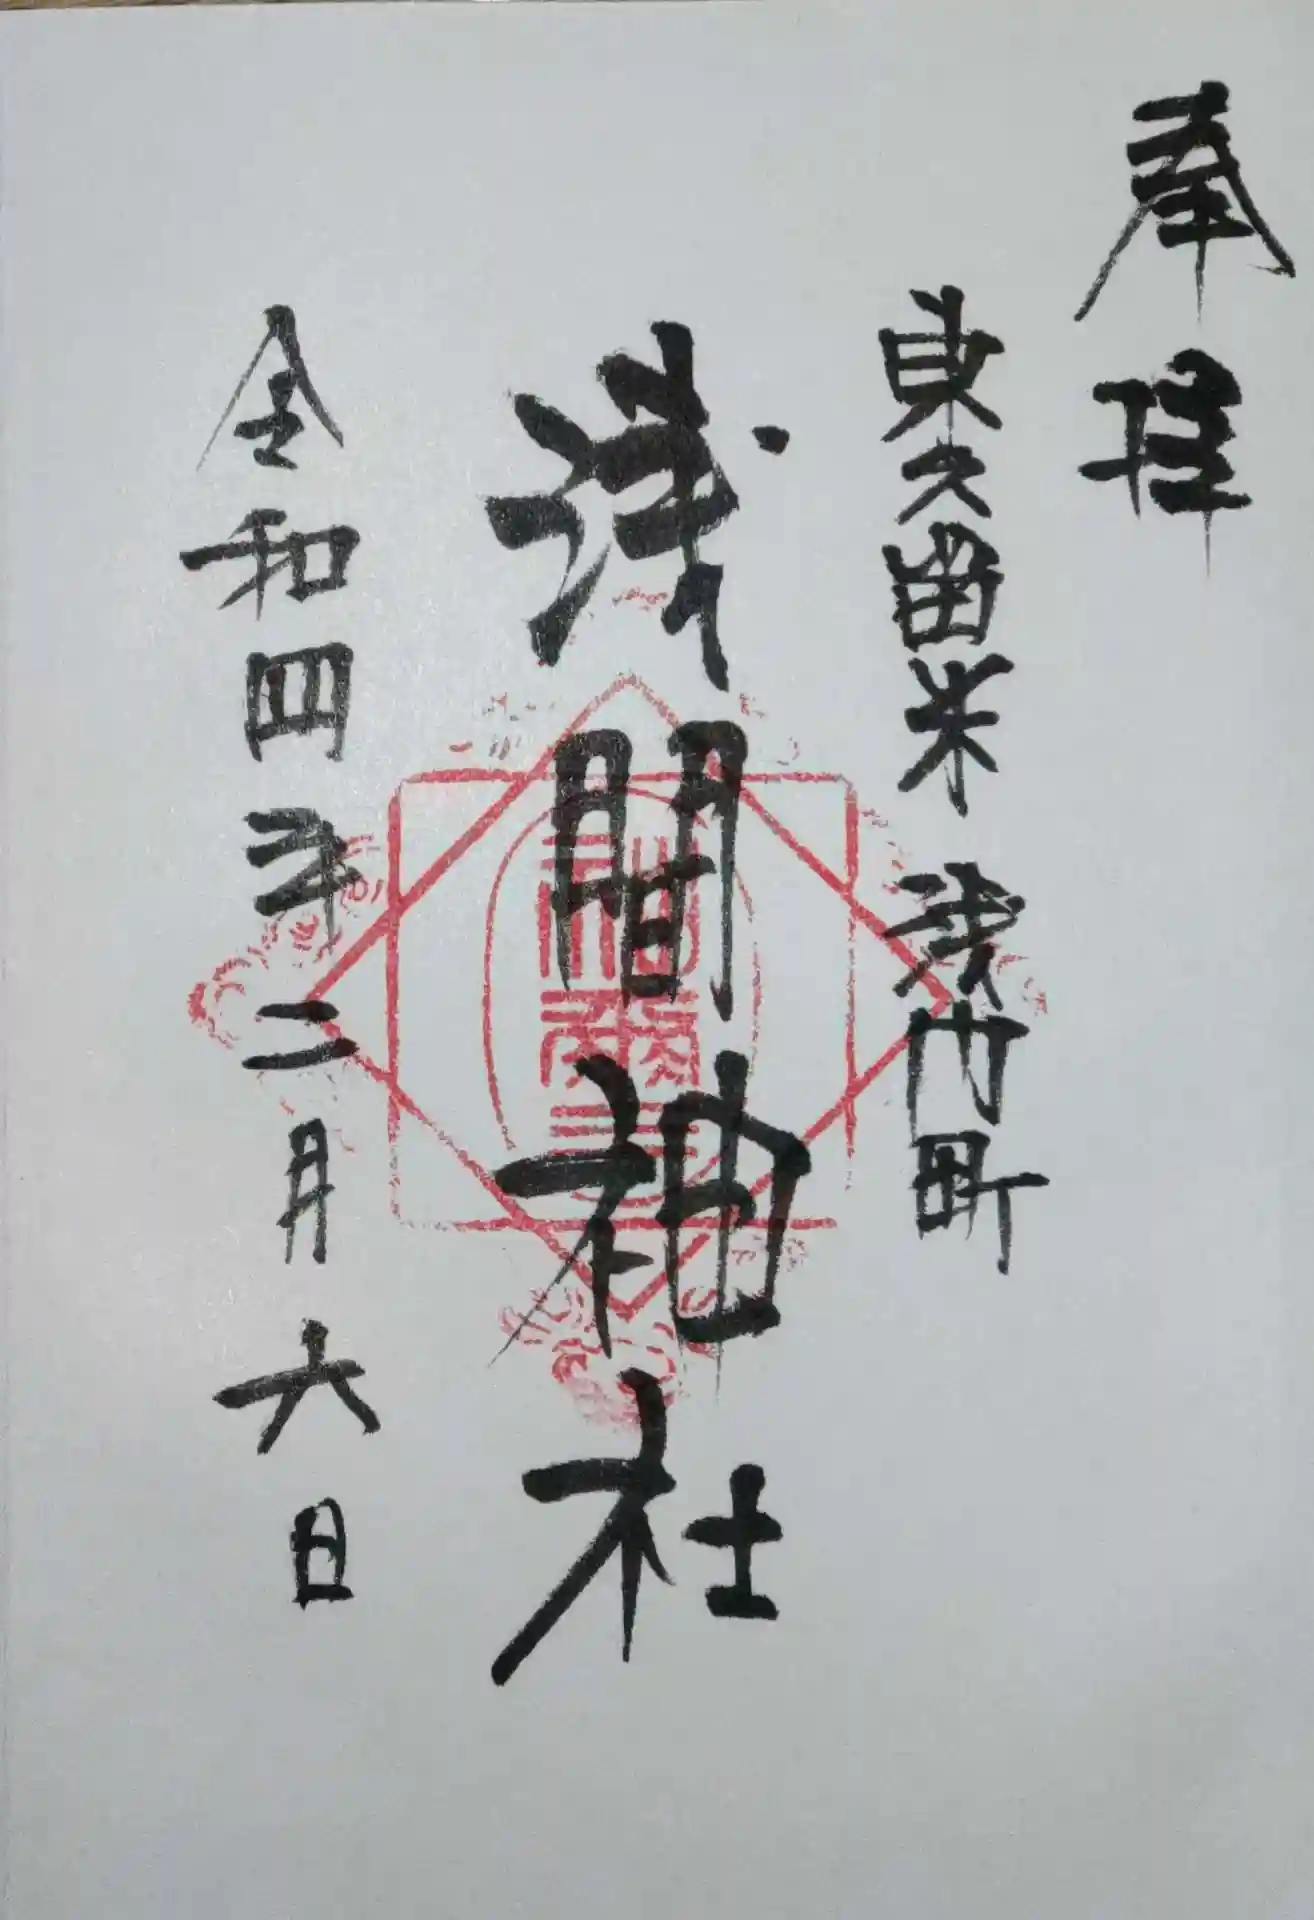 奉拝
東久留米 浅間町
浅間神社
令和四年二月六日